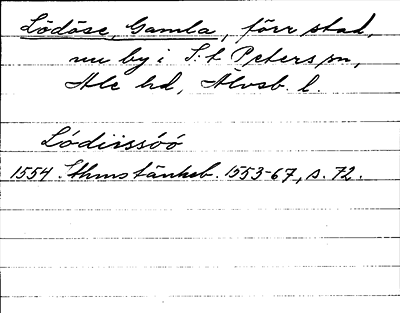 Lödöse, Gamla, förr stad,
nu by i S:t Peters sn,
Ale hd, Älvsb. l.
Lódiissóó
1554. Sthms tänkeb. 1553-67, s. 72.